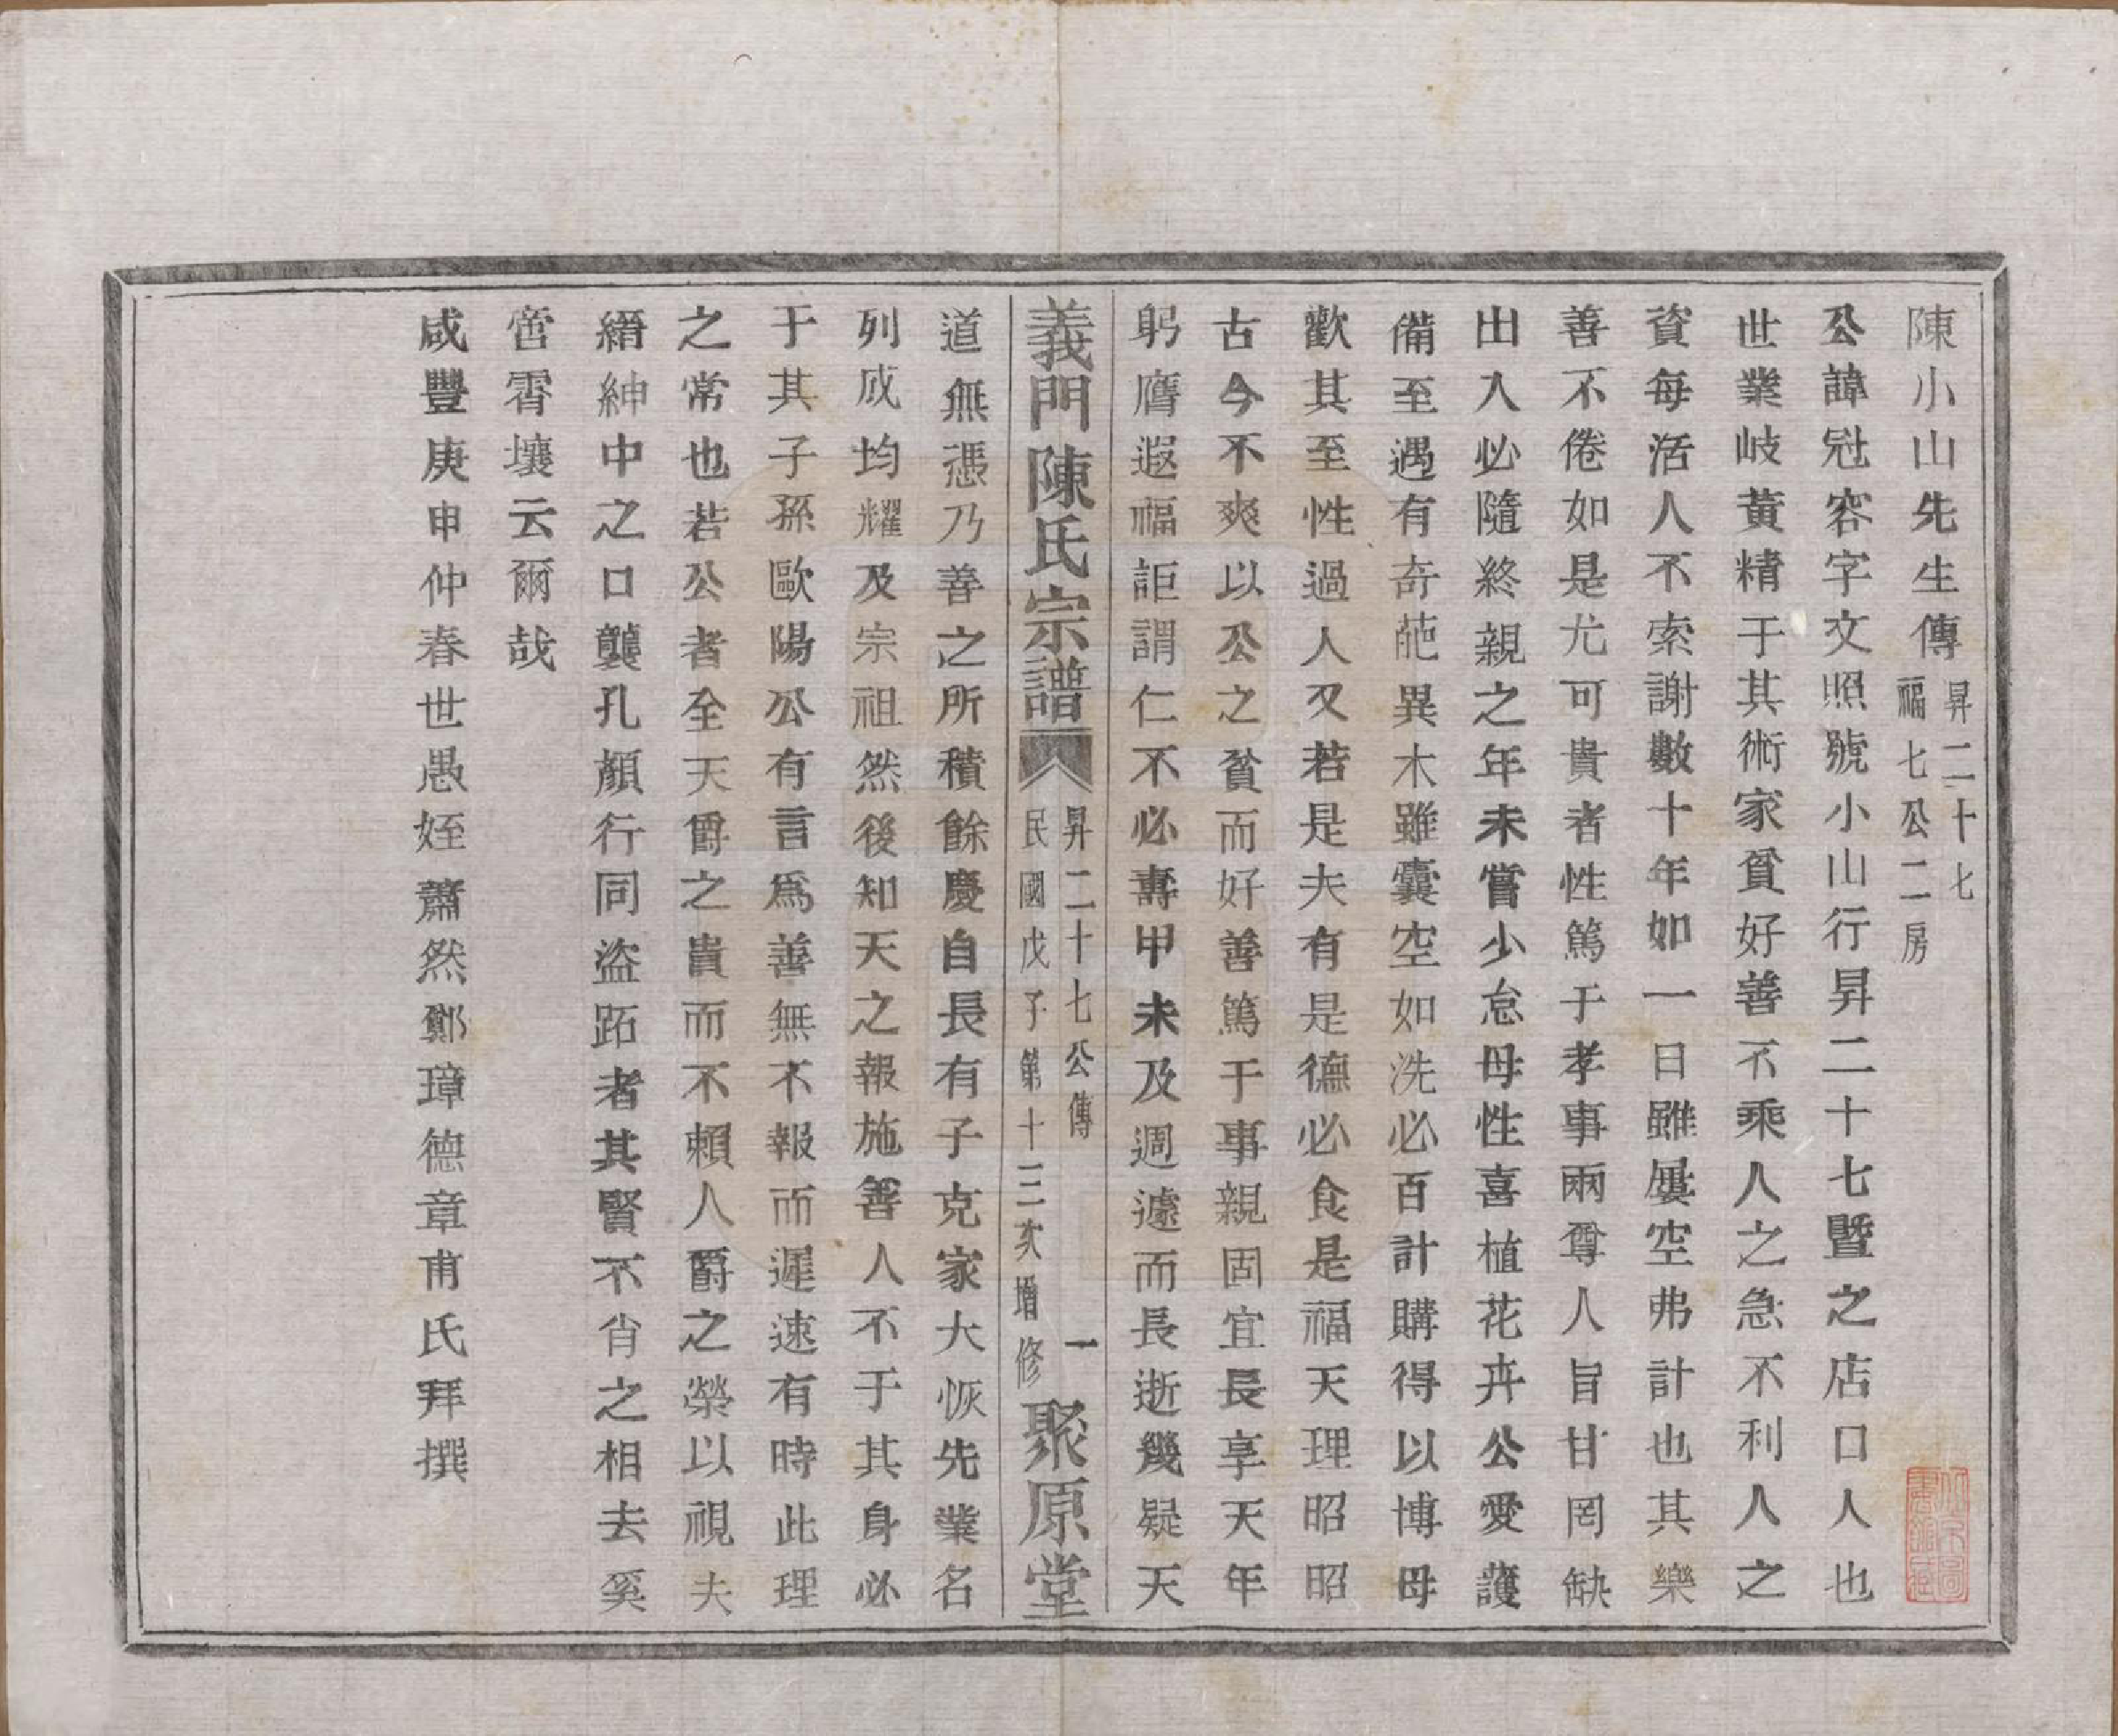 陳小山先生傳
昇二十七
福七公二房
公諱冠容字文照號小山行昇二十七暨之店口人也
世業岐黃精于其術家貧好善不乘人之急不利人之
資每活人不索謝數十年如一日雖屢空弗計也其樂
善不倦如是尤可貴者性篤于孝事兩尊人旨甘罔缺
出入必隨終親之年未嘗少怠母性喜植花卉公愛護
備至遇有奇葩異木雖囊空如洗必百計購得以博母
歡其至性過人又若是夫有是德必食是福天理昭昭
古今不爽以公之貧而好善篤于事親固宜長享天年
躬膺遐福詎謂仁不必壽甲未及週遽而長逝幾疑天
義門陳氏宗譜
昇二十七公傳 一
民國戊子第十三次增修
聚原堂
道無憑乃善之所積餘慶自長有子克家大恢先業名
列成均耀及宗祖然後知天之報施善人不于其身必
于其子孫歐陽公有言爲善無不報而遲速有時此理
之常也若公者全天爵之貴而不賴人爵之榮以視夫
縉紳中之口襲孔顏行同盜跖者其賢不肖之相去奚
啻霄壤云爾哉
咸豐庚申仲春世愚姪蕭然鄭璋德章甫氏拜撰